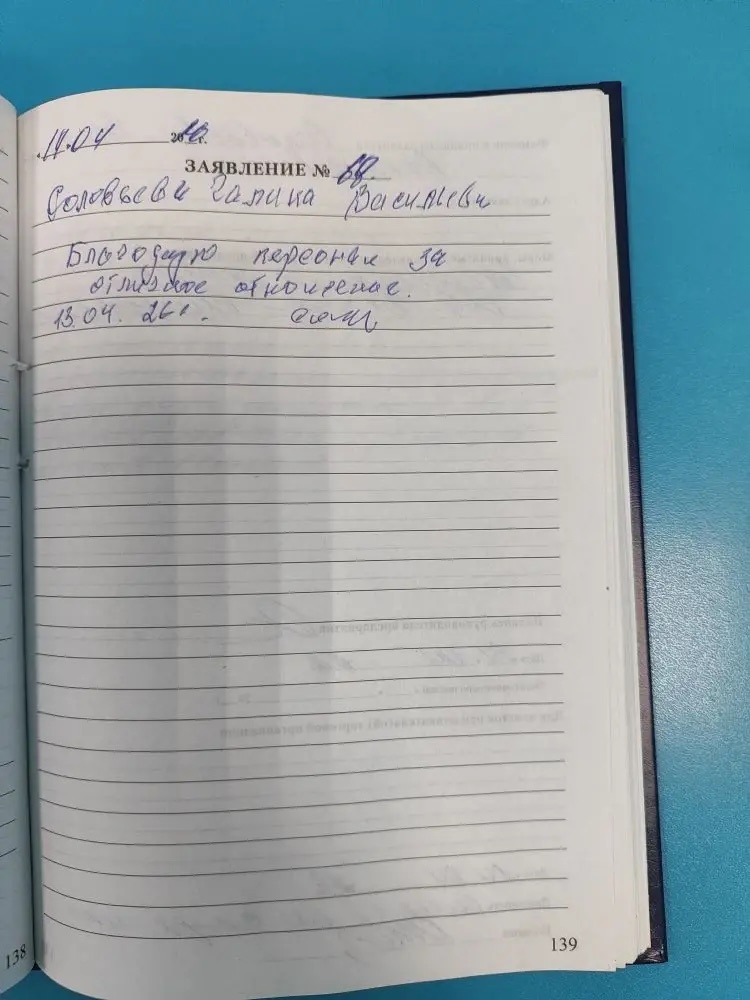 11.04 20 г.
ЗАЯВЛЕНИЕ №
Соловьева Галина Васильевн
Благодарю персонал за
отличное отношение.
13.04.26г.
138
139